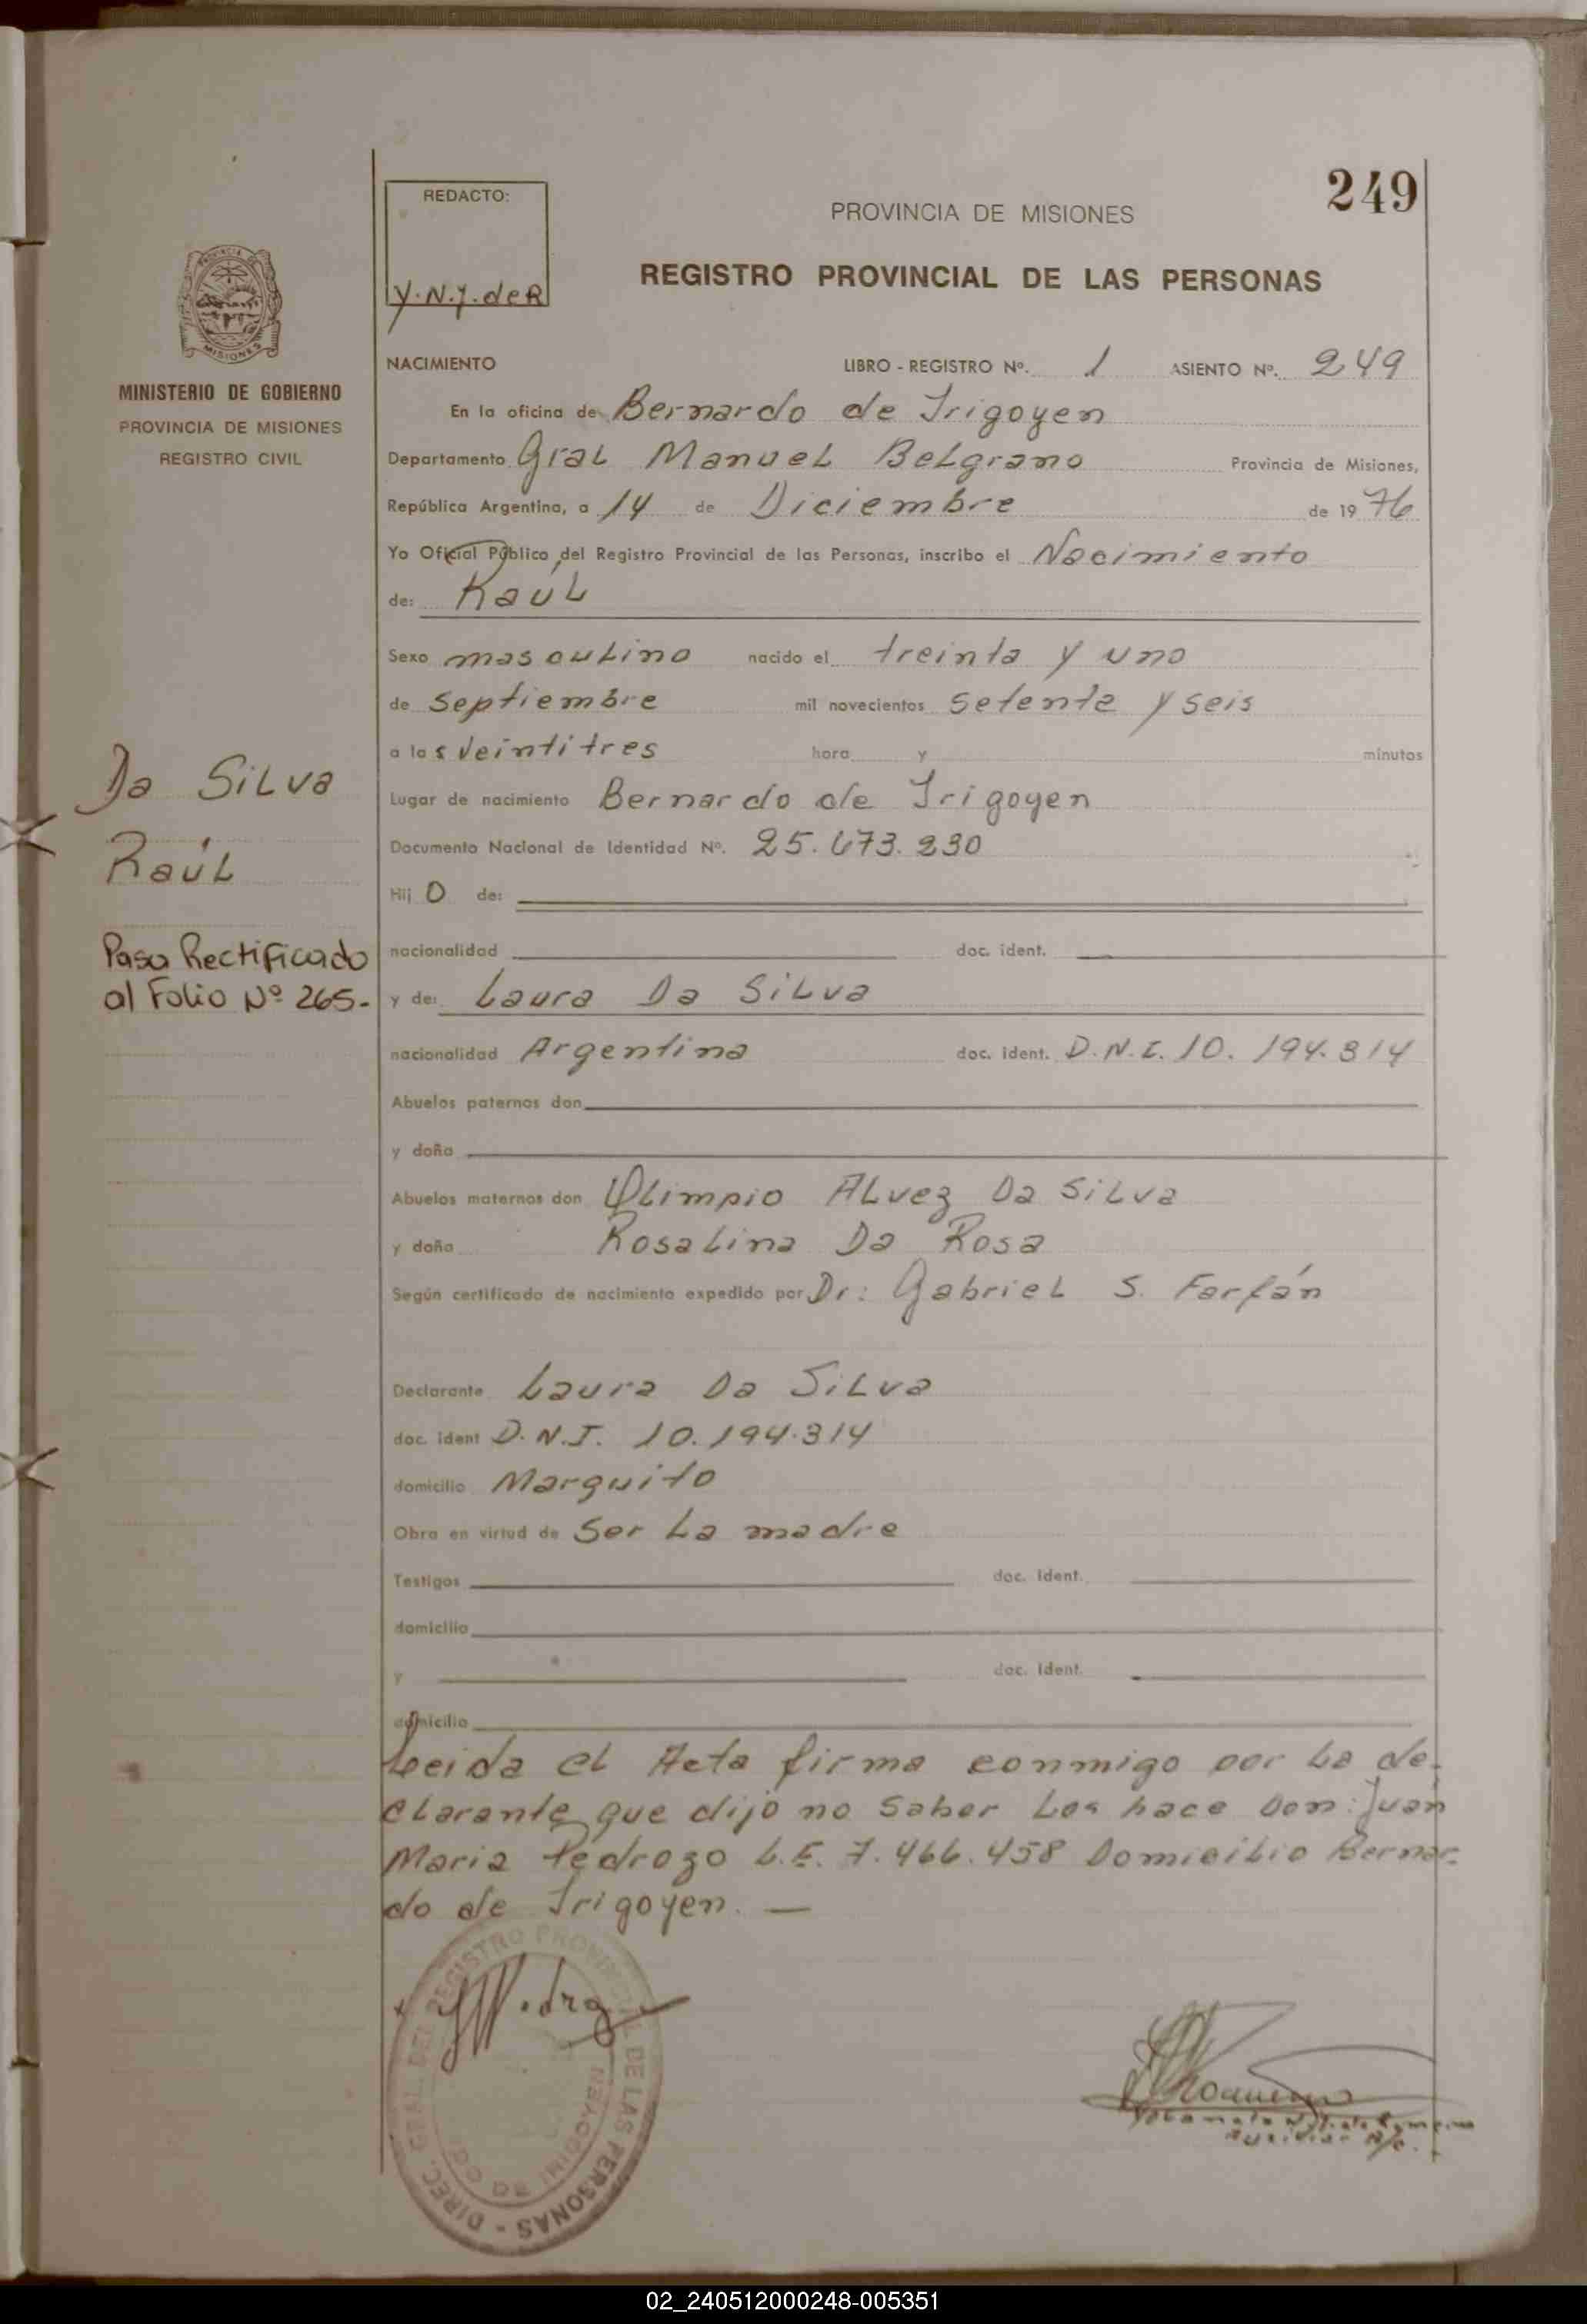 249
REDACTO:
Y.N.J. de R
PROVINCIA DE MISIONES
REGISTRO PROVINCIAL DE LAS PERSONAS
PROVINCIA DE
MISIONES
MINISTERIO DE GOBIERNO
PROVINCIA DE MISIONES
REGISTRO CIVIL
NACIMIENTO LIBRO - REGISTRO Nº. 1 ASIENTO Nº. 249
En la oficina de Bernardo de Irigoyen
Departamento Gral Manuel Belgrano Provincia de Misiones,
República Argentina, a 14 de Diciembre de 1976
Yo Oficial Público del Registro Provincial de las Personas, inscribo el Nacimiento
de: Raúl
Sexo masculino nacido el treinta y uno
de Septiembre mil novecientos setenta y seis
a las veintitres hora y minutos
Lugar de nacimiento Bernardo de Irigoyen
Documento Nacional de Identidad Nº. 25.673.230
Hijo de:
nacionalidad doc. ident.
y de: Laura Da Silva
nacionalidad Argentina doc. ident. D.N.I. 10.194.314
Abuelos paternos don
y doña
Abuelos maternos don Olimpio Alvez Da Silva
y doña Rosalina Da Rosa
Según certificado de nacimiento expedido por Dr: Gabriel S. Farfán
Declarante Laura Da Silva
doc. ident D.N.I. 10.194.314
domicilio Marquito
Obra en virtud de Ser La madre
Testigos doc. ident.
domicilio
y doc. ident.
domicilio
Leida el Acta firma conmigo por La de-
clarante que dijo no Saber Los hace Don: Juan
Maria Pedrozo L.E. 7.466.458 Domicilio Bernar-
do de Irigoyen. —
Da Silva
Raúl
Pasa Rectificado
al Folio Nº 265.-
DIREC. GRAL. DEL REGISTRO PROVINCIAL DE LAS PERSONAS -
02_240512000248-005351